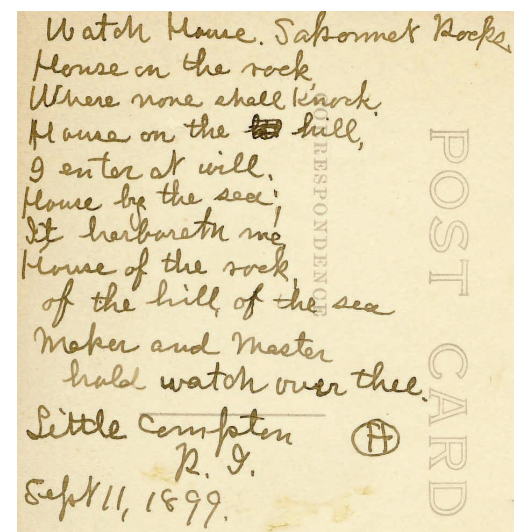 Watch House. Sakonnet Rocks.
House on the rock,
Where none shall knock.
House on the hill,
I enter at will.
House by the sea;
It harboreth me,
House of the rock,
of the hill, of the sea
Maker and Master
hold watch over thee.
Little Compton
R. I.
Sept 11, 1899.
H
CORRESPONDENCE
POST CARD